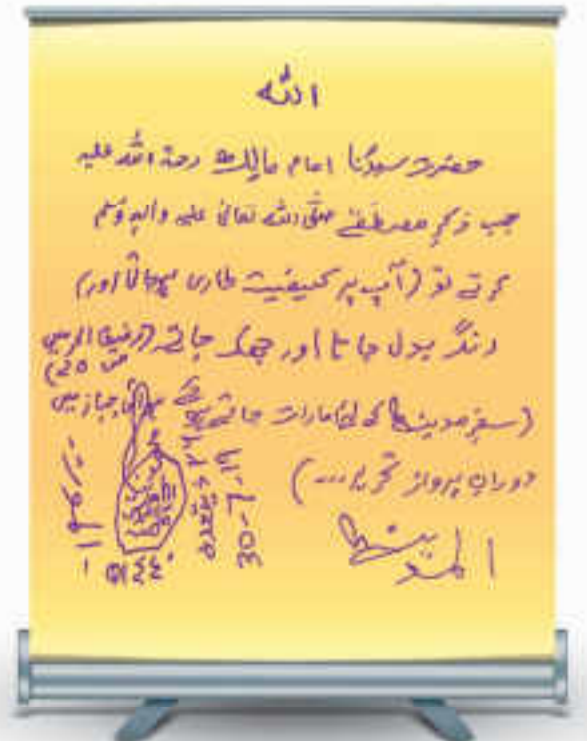 اللہ
حضرت سیدنا امام مالک رحمۃ اللہ علیہ
جب ذکرِ مصطفٰے صلّی اللہ تعالیٰ علیہ واٰلہٖ وسلم
کرتے تو (آپ پر کیفیت طاری ہوجاتی اور)
رنگ بدل جاتا اور جھک جاتے (
ص 20)
(سفرِ مدینہ کے امارات جاتے ہوئے ہوائی جہاز میں
دورانِ پرواز تحریر...)
المدینہ
30-7-19
١٤٤٠